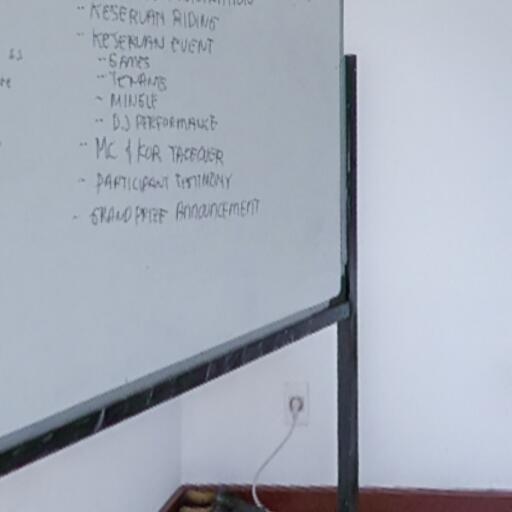 -- KESERUAN RIDING
-- KESERUAN EVENT
-- GAMES
-- TENANTS
- MINGLE
-- DJ PERFORMANCE
-- MC & KOR TAKEOVER
- PARTICIPANT TESTIMONY
- GRAND PRIZE ANNOUNCEMENT